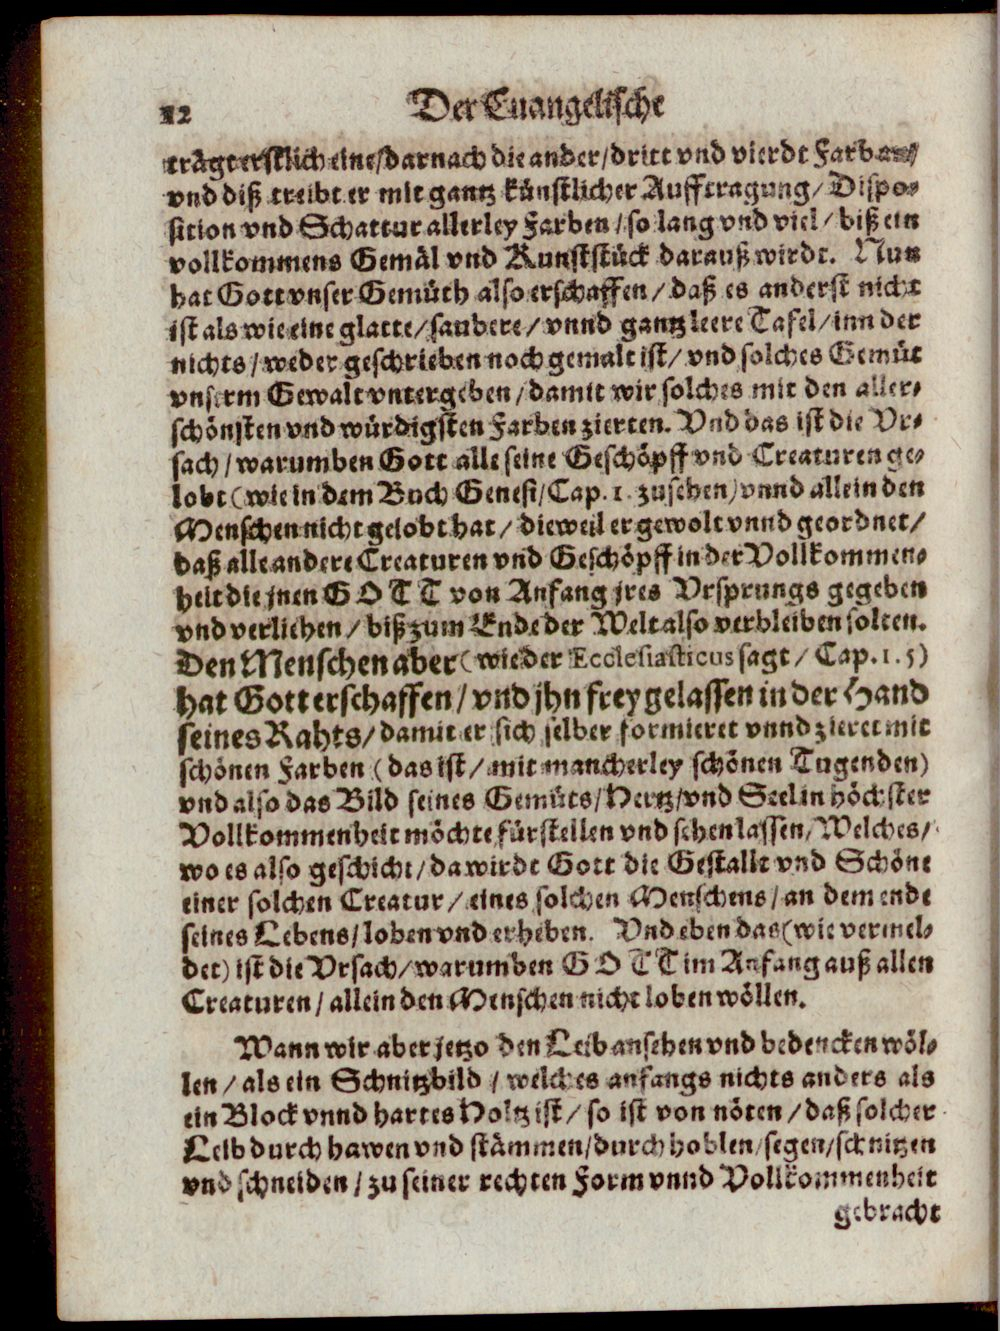 12 Der Euangelische
trägt erstlich eine/darnach die ander/dritt vnd vierdt Farb
vnd diß treibt er mit gantz künstlicher Aufftragung/Dispo-
sition vnd Schattur allerley Farben/so lang vnd viel/biß ein
vollkommens Gemäl vnd Kunststück darauß wirdt. Nun
hat Gott vnser Gemüth also erschaffen/daß es anderst nicht
ist als wie eine glatte/saubere/vnnd gantz leere Tafel/inn der
nichts/weder geschrieben noch gemalt ist/vnd solches Gemüt
vnserm Gewalt vntergeben/damit wir solches mit den aller-
schönsten vnd würdigsten Farben zierten. Vnd das ist die Vr-
sach/warumben Gott alle seine Geschöpff vnd Creaturen ge-
lobt (wie in dem Buch Genesi/Cap. 1. zusehen) vnnd allein den
Menschen nicht gelobt hat/dieweil er gewolt vnnd geordnet/
daß alle andere Creaturen vnd Geschöpff in der Vollkommen-
heit die jnen GOTT von Anfang jres Vrsprungs gegeben
vnd verliehen/biß zum Ende der Welt also verbleiben solten.
Den Menschen aber (wie der Ecclesiasticus sagt/Cap. 1.5)
hat Gott erschaffen/vnd jhn frey gelassen in der Hand
seines Rahts/damit er sich selber formieret vnnd zieret mit
schönen Farben (das ist/mit mancherley schönen Tugenden)
vnd also das Bild seines Gemüts/Hertz/vnd Seel in höchster
Vollkommenheit möchte fürstellen vnd sehen lassen/Welches/
wo es also geschicht/da wirdt Gott die Gestallt vnd Schöne
einer solchen Creatur/eines solchen Menschens/an dem ende
seines Lebens/loben vnd erheben. Vnd eben das (wie vermel-
det) ist die Vrsach/warumben GOTT im Anfang auß allen
Creaturen/allein den Menschen nicht loben wöllen.
Wann wir aber jetzo den Leib ansehen vnd bedencken wöl-
len/als ein Schnitzbild/welches anfangs nichts anders als
ein Block vnnd hartes Holtz ist/so ist von nöten/daß solcher
Leib durch hawen vnd stämmen/durch hoblen/segen/schnitzen
vnd schneiden/zu seiner rechten Form vnnd Vollkommenheit
gebracht